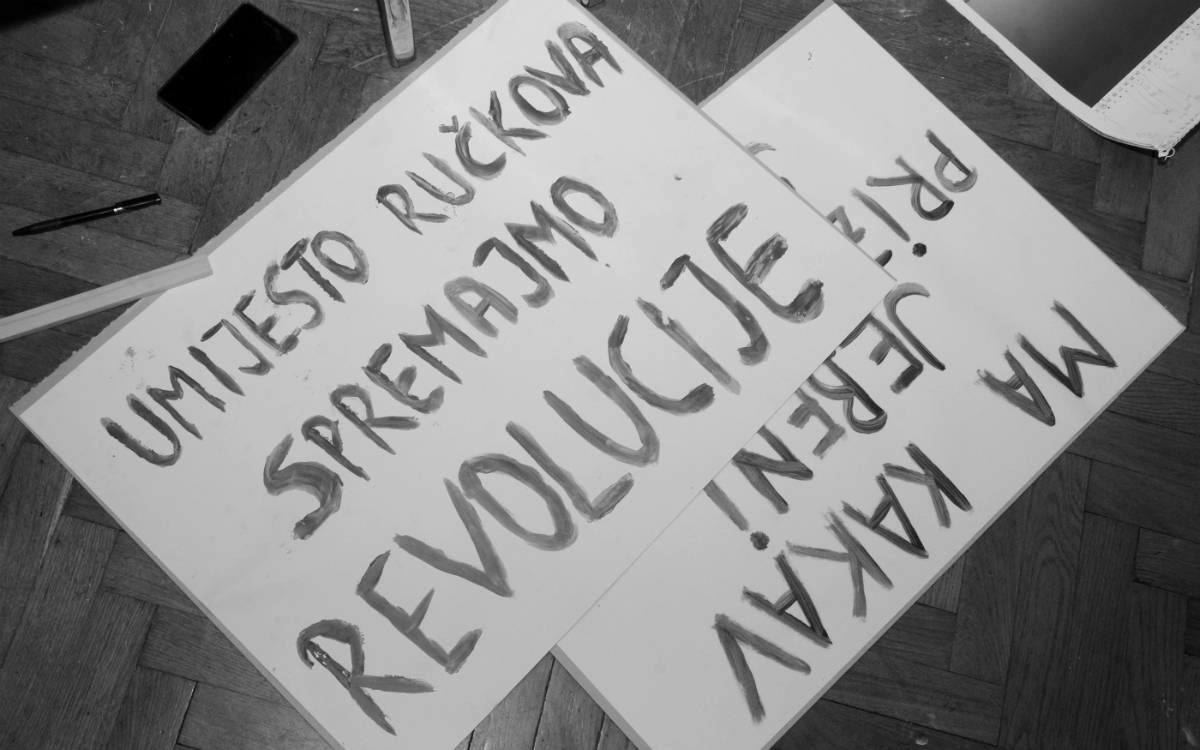 UMIJESTO RUČKOVA
SPREMAJMO
REVOLUCIJE
MA KAKAV
JEBENI